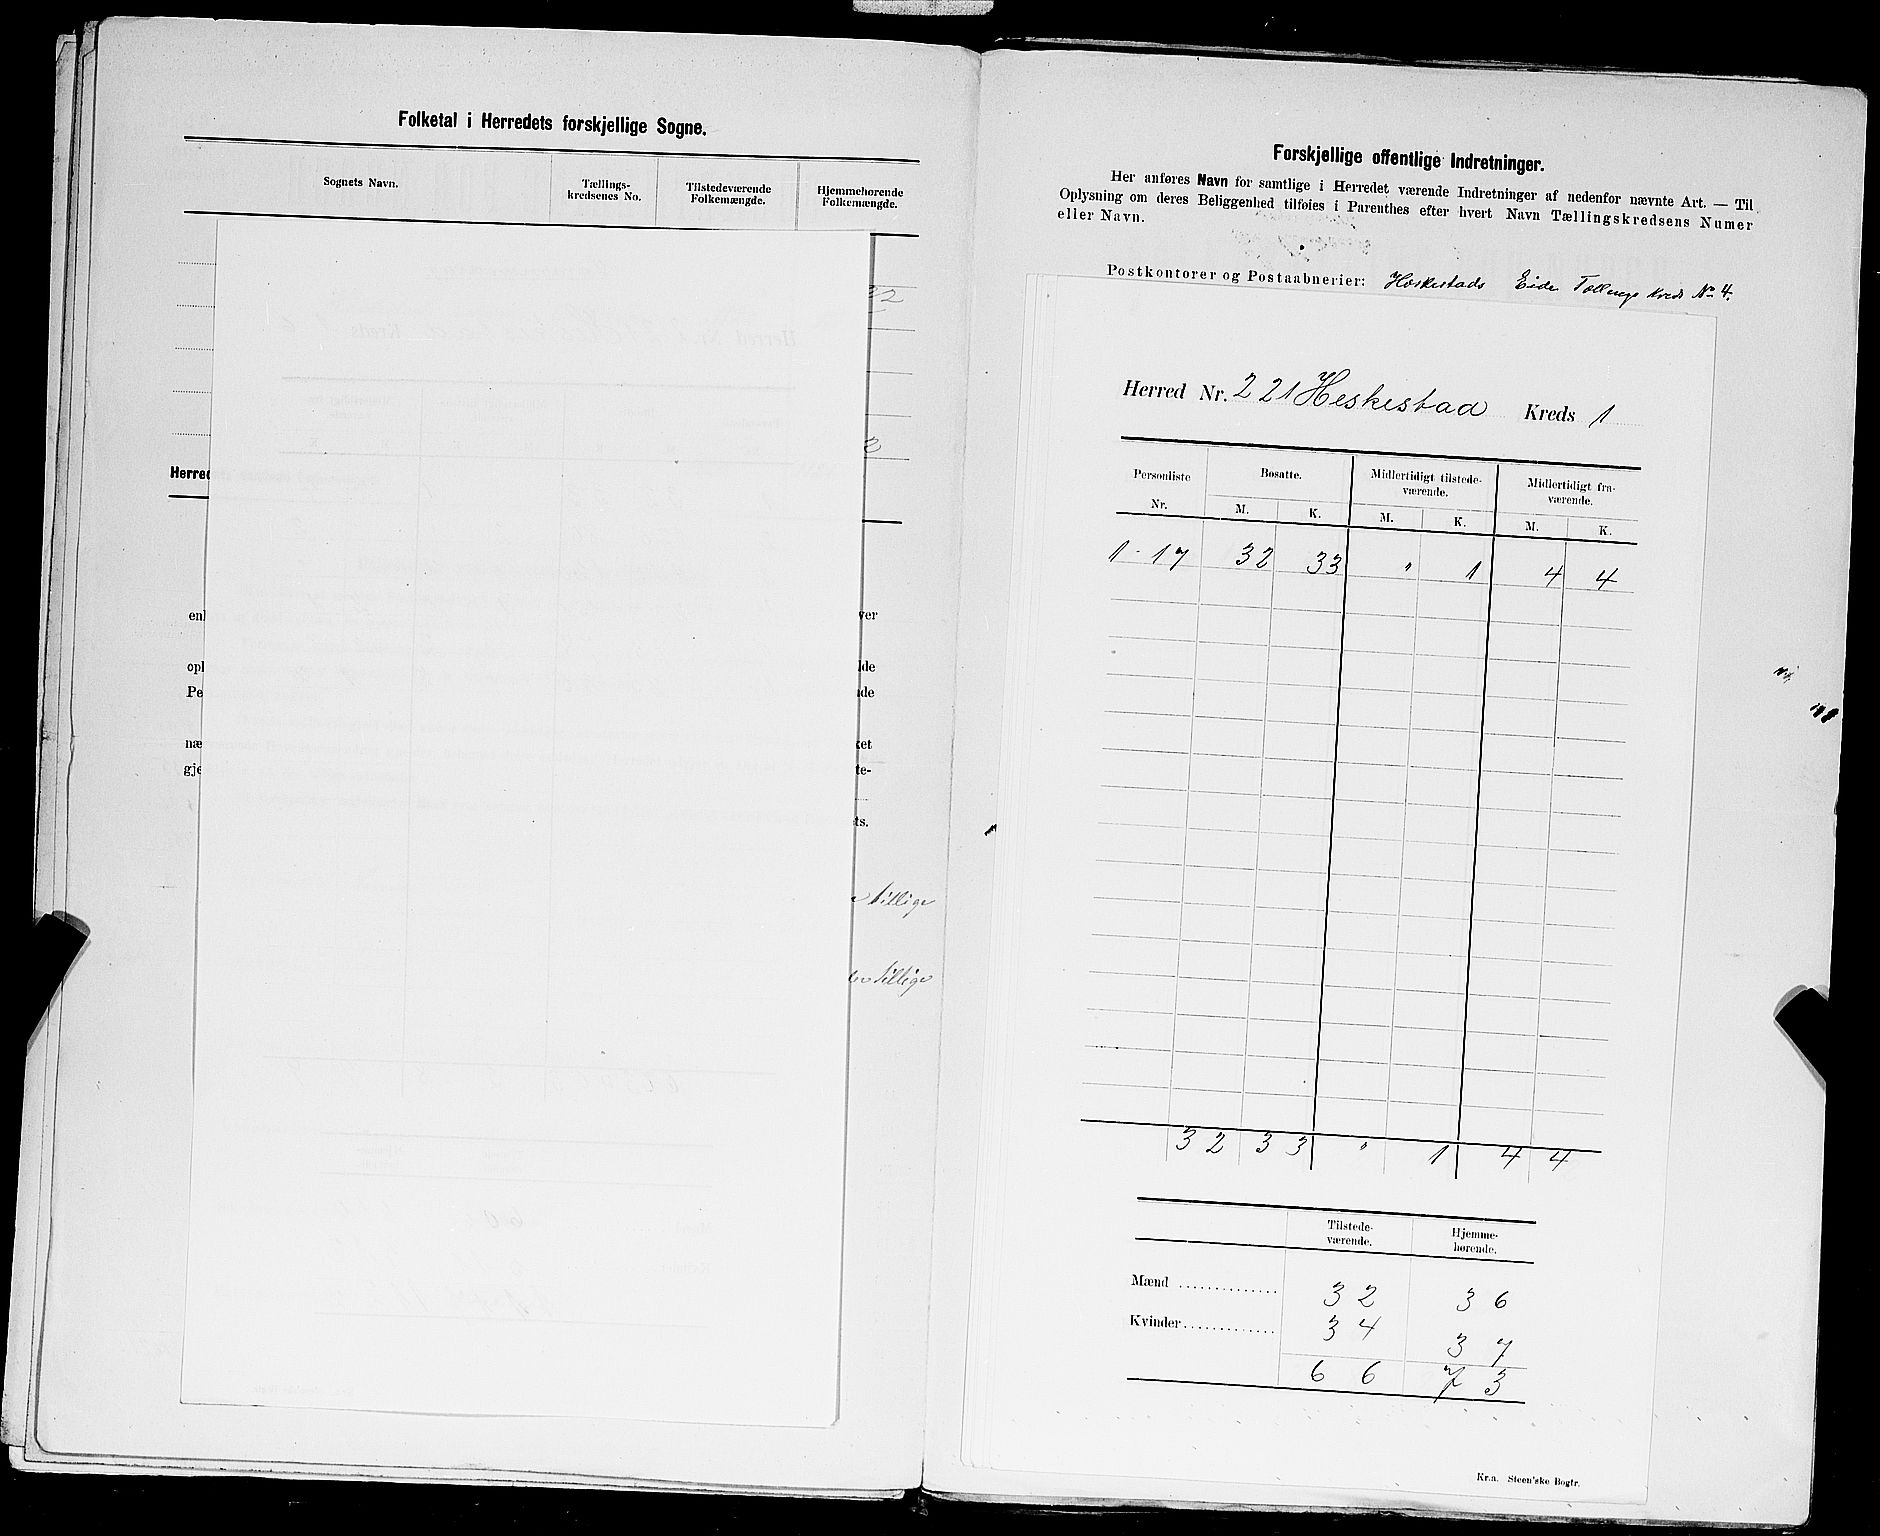 Folketal i Herredets forskjellige Sogne.
Sognets Navn.
Tællings-
kredsenes No.
Tilstedeværende
Folkemængde.
Hjemmehørende
Folkemængde.
22
2
Herred
enl
ver
opl
lde
Pe
nde
næ
ket
gje
te-
ts.
tillige
tillige
Forskjellige offentlige Indretninger.
Her anføres Navn for samtlige i Herredet værende Indretninger af nedenfor nævnte Art. — Til
Oplysning om deres Beliggenhed tilføies i Parenthes efter hvert Navn Tællingskredsens Numer
eller Navn.
Postkontorer og Postaabnerier: Heskestads Eide Tællings Kreds No 4.
Herred Nr. 221 Heskestad Kreds 1
Personliste
Nr.
Bosatte.
M. K.
Midlertidigt tilstede-
værende.
M. K.
Midlertidigt fra-
værende.
M. K.
1 - 17 32 33 " 1 4 4
32 33 " 1 4 4
Tilstede-
værende.
Hjemme-
hørende.
Mænd .............. 32 36
Kvinder............. 34 37
66 73
Kr.a. Steen'ske Bogtr.